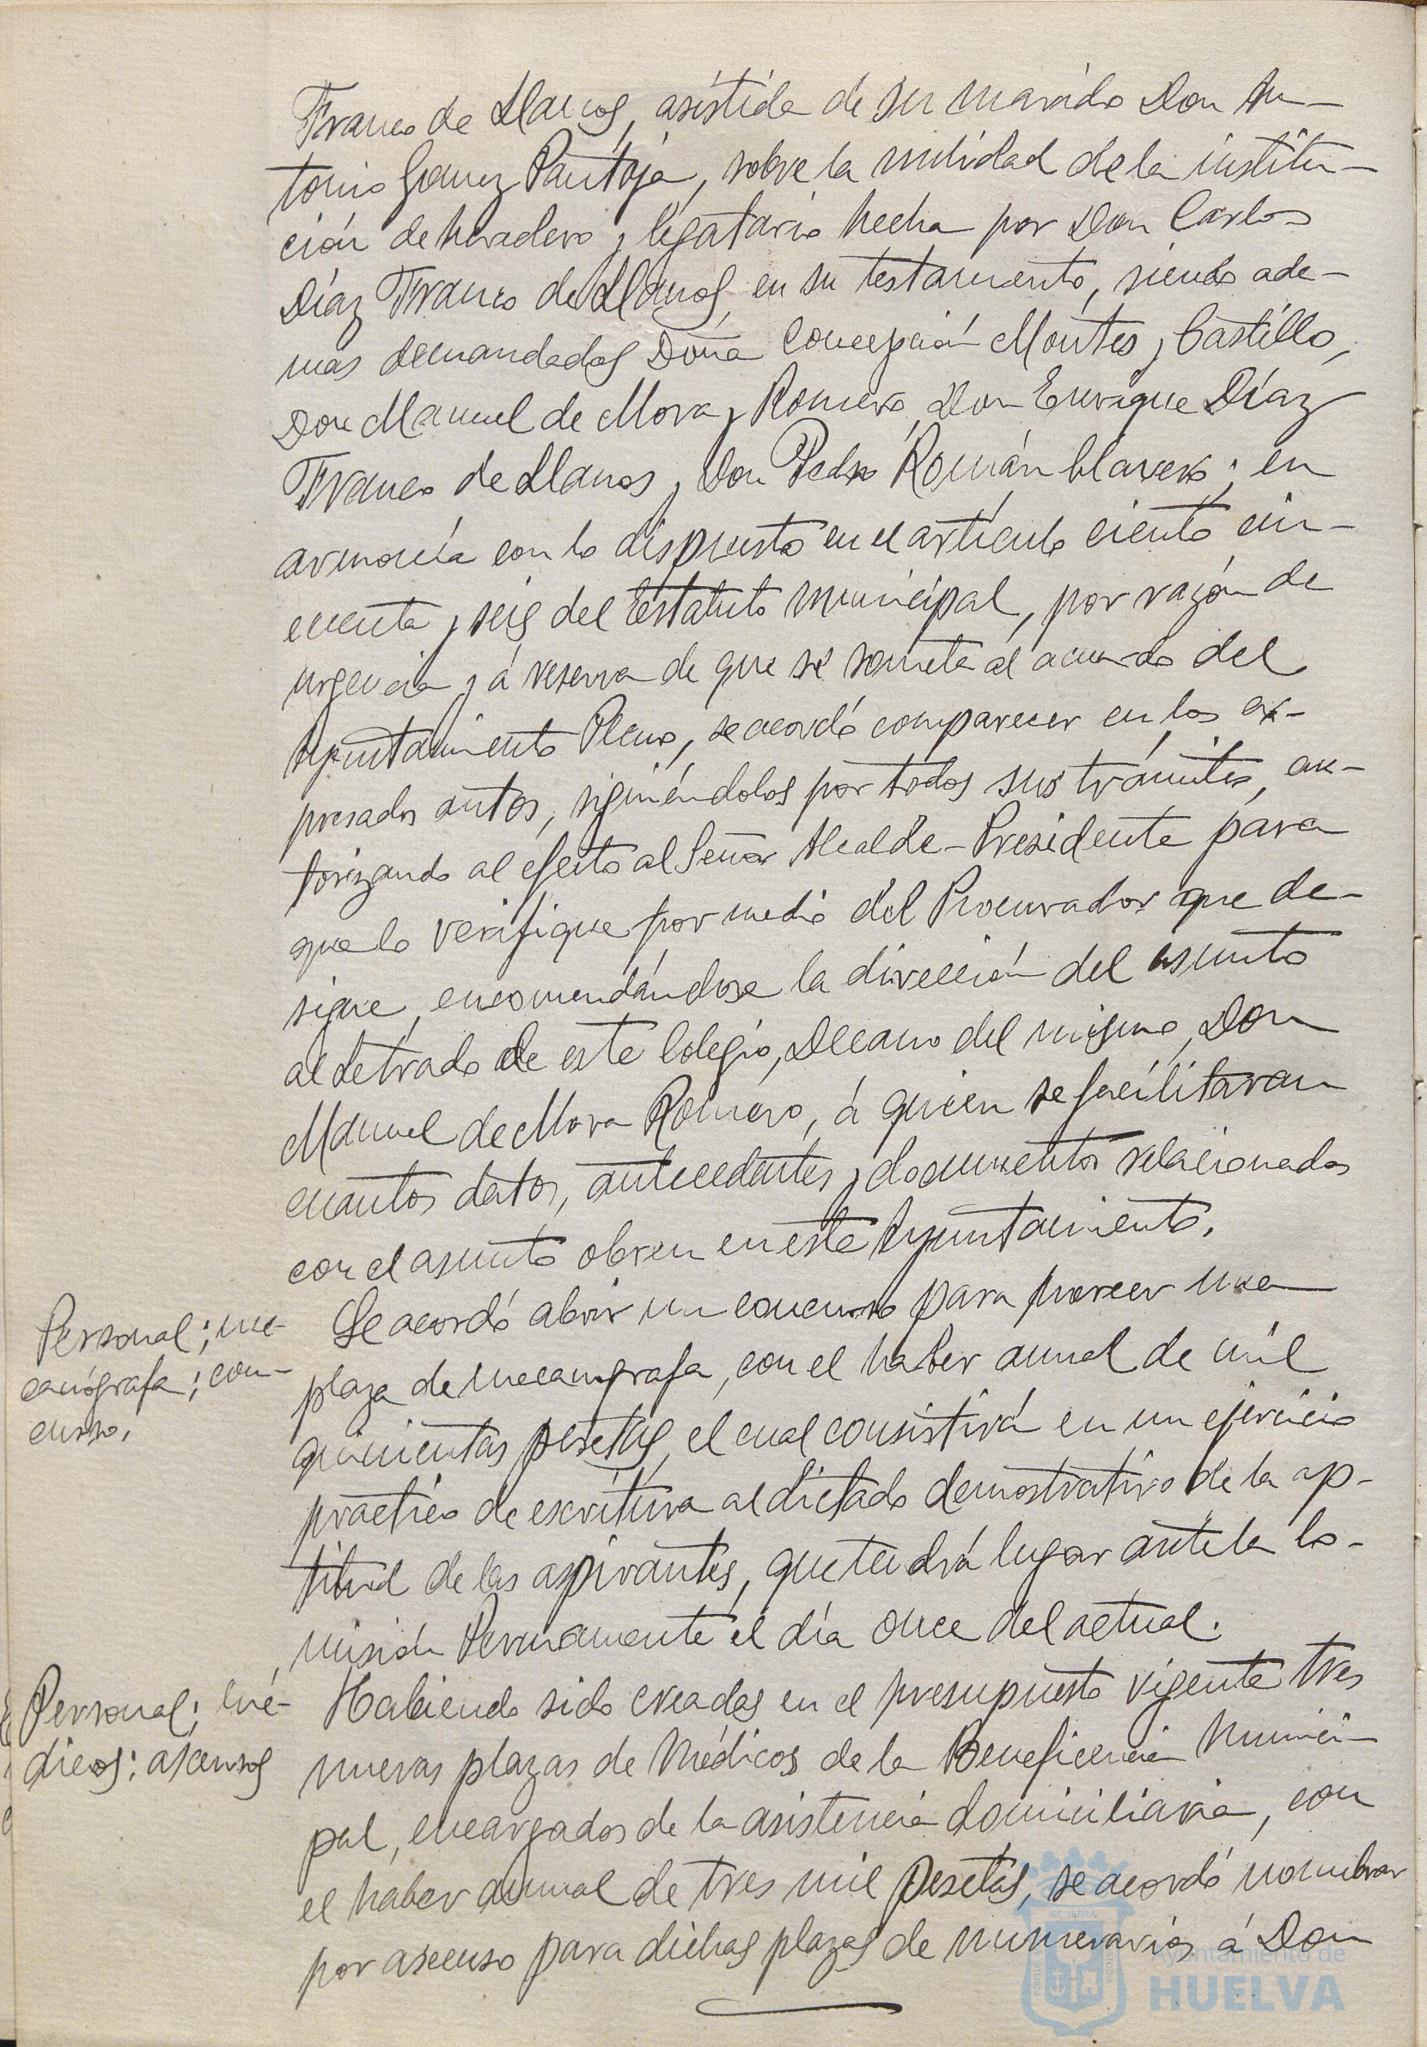 Franco de Llanos, asistida de su marido Don An-
tonio Gomez Pantoja, sobre la nulidad de la institu-
ción de heredero y legatario hecha por Don Carlos
Díaz Franco de Llanos, en su testamento, siendo ade-
mas demandados Doña Concepción Montes y Castillo,
Don Manuel de Mora y Romero, Don Enrique Díaz
Franco de Llanos y Don Pedro Román Clavero; en
armonía con lo dispuesto en el artículo ciento cin-
cuenta y seis del Estatuto municipal, por razón de
urgencia y á reserva de que se someta al acuerdo del
Ayuntamiento Pleno, se acordó comparecer en los ex-
presados autos, siguiéndolos por todos sus trámites, au-
torizando al efecto al Señor Alcalde-Presidente para
que lo verifique por medio del Procurador que de-
signe, encomendándose la dirección del asunto
al Letrado de este Colegio, Decano del mismo, Don
Manuel de Mora Romero, á quien se facilitaran
cuantos datos, antecedentes y documentos relacionados
con el asunto obren en este Ayuntamiento.
Personal; me-
canógrafa; con-
curso.
Se acordó abrir un concurso para proveer una
plaza de mecanografa, con el haber anual de mil
quinientas pesetas, el cual consistirá en un ejercicio
practico de escritura al dictado demostrativo de la ap-
titud de las aspirantes, que tendrá lugar ante la Co-
misión Permanente el día once del actual.
Personal; mé-
dicos; ascensos
Habiendo sido creadas en el presupuesto vigente tres
nuevas plazas de Médicos de la Beneficencia Munici-
pal, encargados de la asistencia domiciliaria, con
el haber anual de tres mil pesetas, se acordó nombrar
por ascenso para dichas plazas de numerarios á Don
Ayuntamiento de
HUELVA